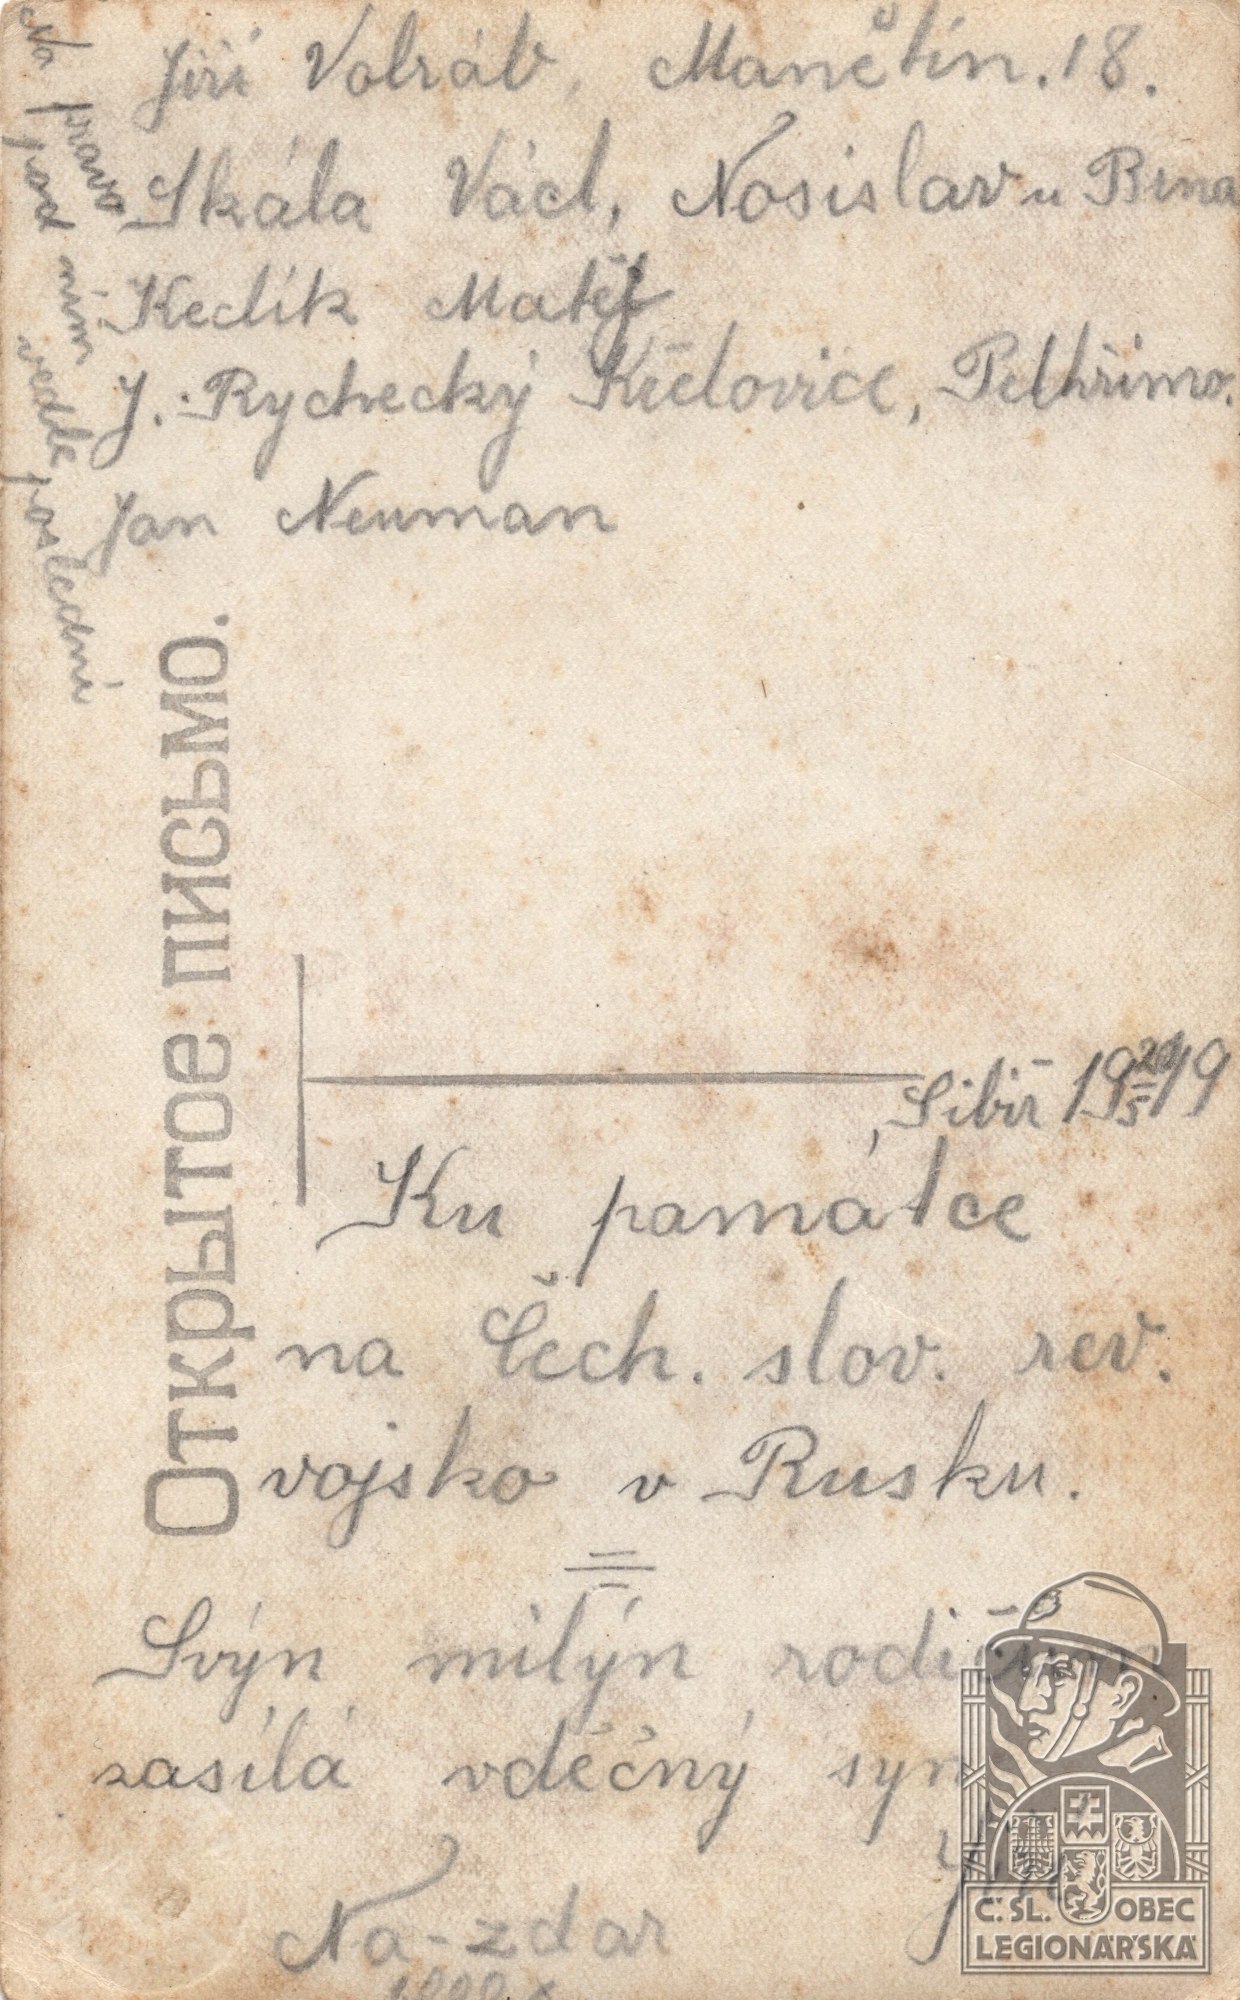 Jiří Volráb, Manětín. 18.
Skála Václ, Nosislav u Brna
Kedlík Matěj
J. Rychecký Křelovice, Pelhřimo.
Jan Neuman
Na pravo
pod ním
vedle poslední
Открытое письмо.
Sibiř 19 20/5 19
Ku památce
na Čech. slov. rev.
vojsko v Rusku.
Svýn milýn rodičům
zasílá vděčný syn
Na-zdar
Č. SL. OBEC
LEGIONÁŘSKÁ